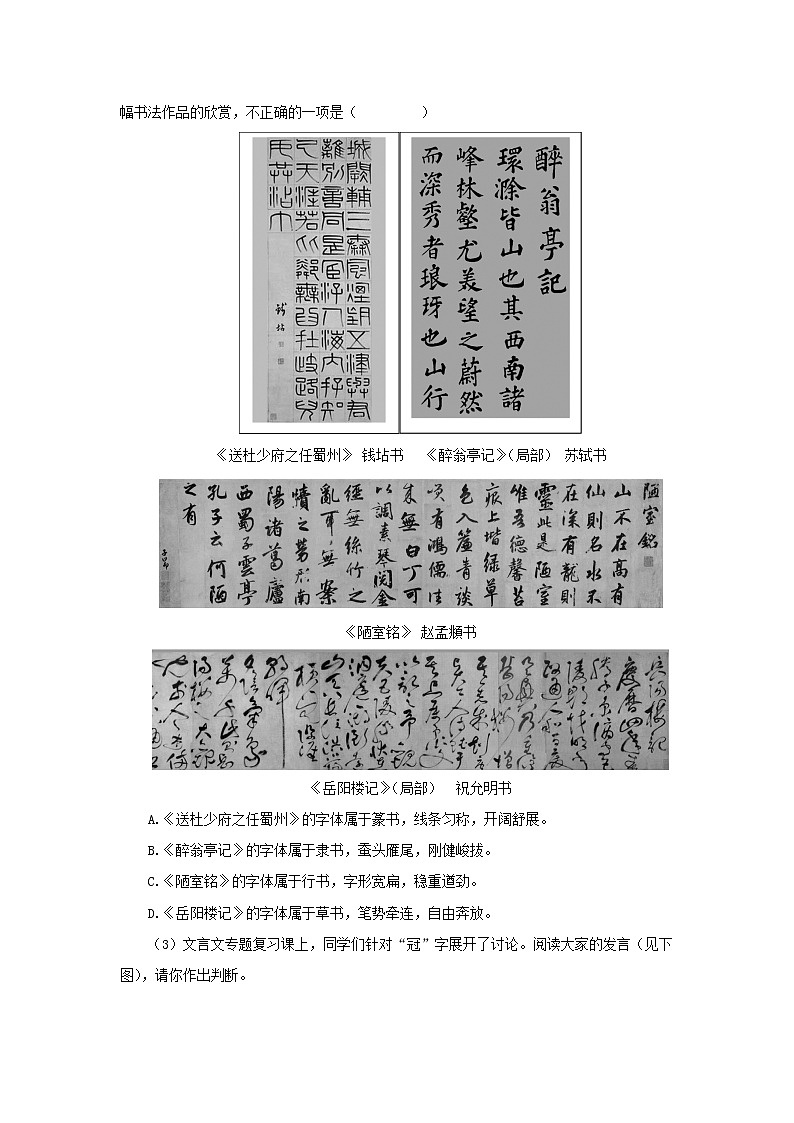 幅书法作品的欣赏，不正确的一项是（　　　　）
城闕輔三秦風煙望五津與君
離別意同是宦游人海内存知
己天涯若比鄰無爲在歧路兒
女共沾巾
錢坫
醉翁亭記
環滁皆山也其西南諸
峰林壑尤美望之蔚然
而深秀者琅玡也山行
《送杜少府之任蜀州》 钱坫书　《醉翁亭记》（局部） 苏轼书
陋室銘
山不在高有
仙則名水不
在深有龍則
靈此是陋室
惟吾德馨苔
痕上堦緑草
色入簾青談
笑有鴻儒往
來無白丁可
以調素琴閱金
經無絲竹之
亂耳無案
牘之勞形南
陽諸葛廬
西蜀子雲亭
孔子云何陋
之有
子昂
《陋室铭》 赵孟頫书
岳陽樓記
慶曆四年
《岳阳楼记》（局部）　祝允明书
A.《送杜少府之任蜀州》的字体属于篆书，线条匀称，开阔舒展。
B.《醉翁亭记》的字体属于隶书，蚕头雁尾，刚健峻拔。
C.《陋室铭》的字体属于行书，字形宽扁，稳重遒劲。
D.《岳阳楼记》的字体属于草书，笔势牵连，自由奔放。
（3）文言文专题复习课上，同学们针对“冠”字展开了讨论。阅读大家的发言（见下
图），请你作出判断。